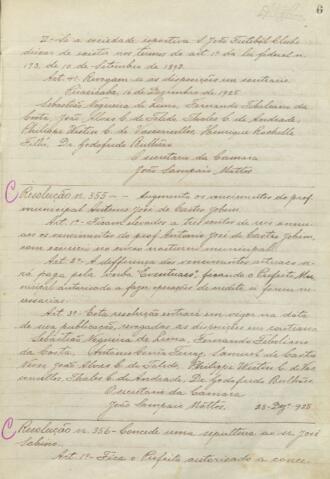 6
II - Se a sociedade esportiva S. João Futebol Clube
deixar de existir nos termos do art. 1º da lei federal n.
173, de 10 de Setembro de 1893.
Art. 4º Revogam-se as disposições em contrario
Piracicaba, de Dezembro de 1925
Sebastião Nogueira de Lima, Fernando Febeliano da
Costa, João Alves C. de Toledo, Thales C. de Andrade,
Philippe Westin C. de Vasconcellos, Henrique Rochelle
Filho, Dr. Godofredo Bulhões
O secretario da Camara
João Sampaio Mattos
Resolução n. 355 - Augmenta os vencimentos do prof.
municipal Antonio José de Castro Jobim.
Art. 1º - Ficam elevados a mil reis annu-
aes os vencimentos do prof. Antonio José de Castro Jobim,
com exercicio no curso nocturno municipal.
Art. 2º - A differença dos vencimentos actuaes se-
rá paga pela verba "Eventuaes", ficando o Prefeito Mu-
nicipal autorizado a fazer operações de credito si forem ne-
cessarias.
Art. 3º - Esta resolução entrará em vigor na data
de sua publicação, revogadas as disposições em contrario
Sebastião Nogueira de Lima, Fernando Febeliano
da Costa, Antonio Correa Ferraz, Samuel de Castro
Neves, João Alves C. de Toledo, Philippe Westin C. de Vas-
concellos, Thales C. de Andrade, Dr. Godofredo Bulhões
O secretario da Camara
João Sampaio Mattos. 23-Dez.º 925
Resolução n. 356 - Concede uma sepultura ao sr. José
Sabino.
Art. 1º - Fica o Prefeito autorizado a conce-